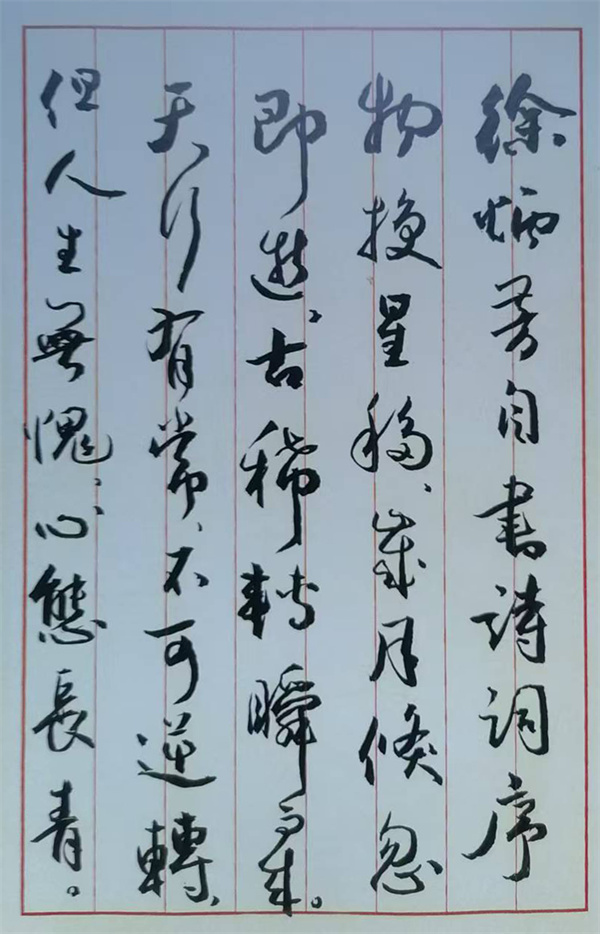 徐炳芳自書詩詞序
物換星移、歲月倏忽
即逝、古稀轉瞬而來。
天行有常、不可逆轉、
但人生無愧、心態長青。